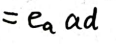 = eₐ ad